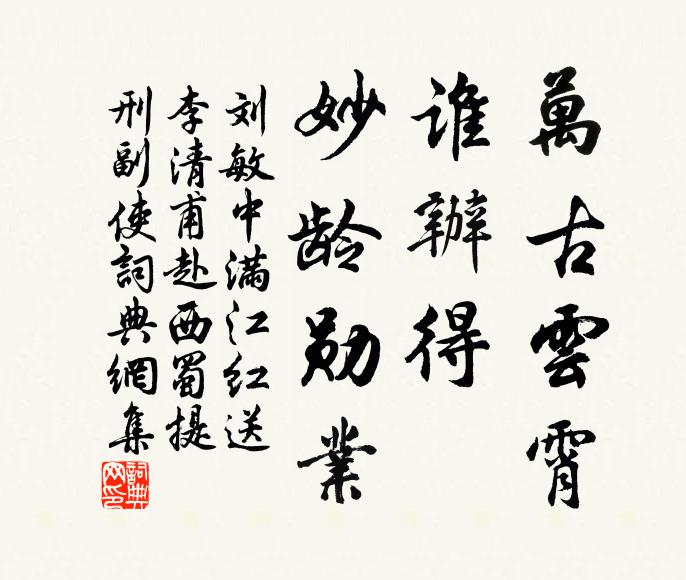 萬古雲霄
誰辦得
妙龄勋業
刘敏中满江红送
李清甫赴西蜀提
刑副使詞典網集
詞典网印